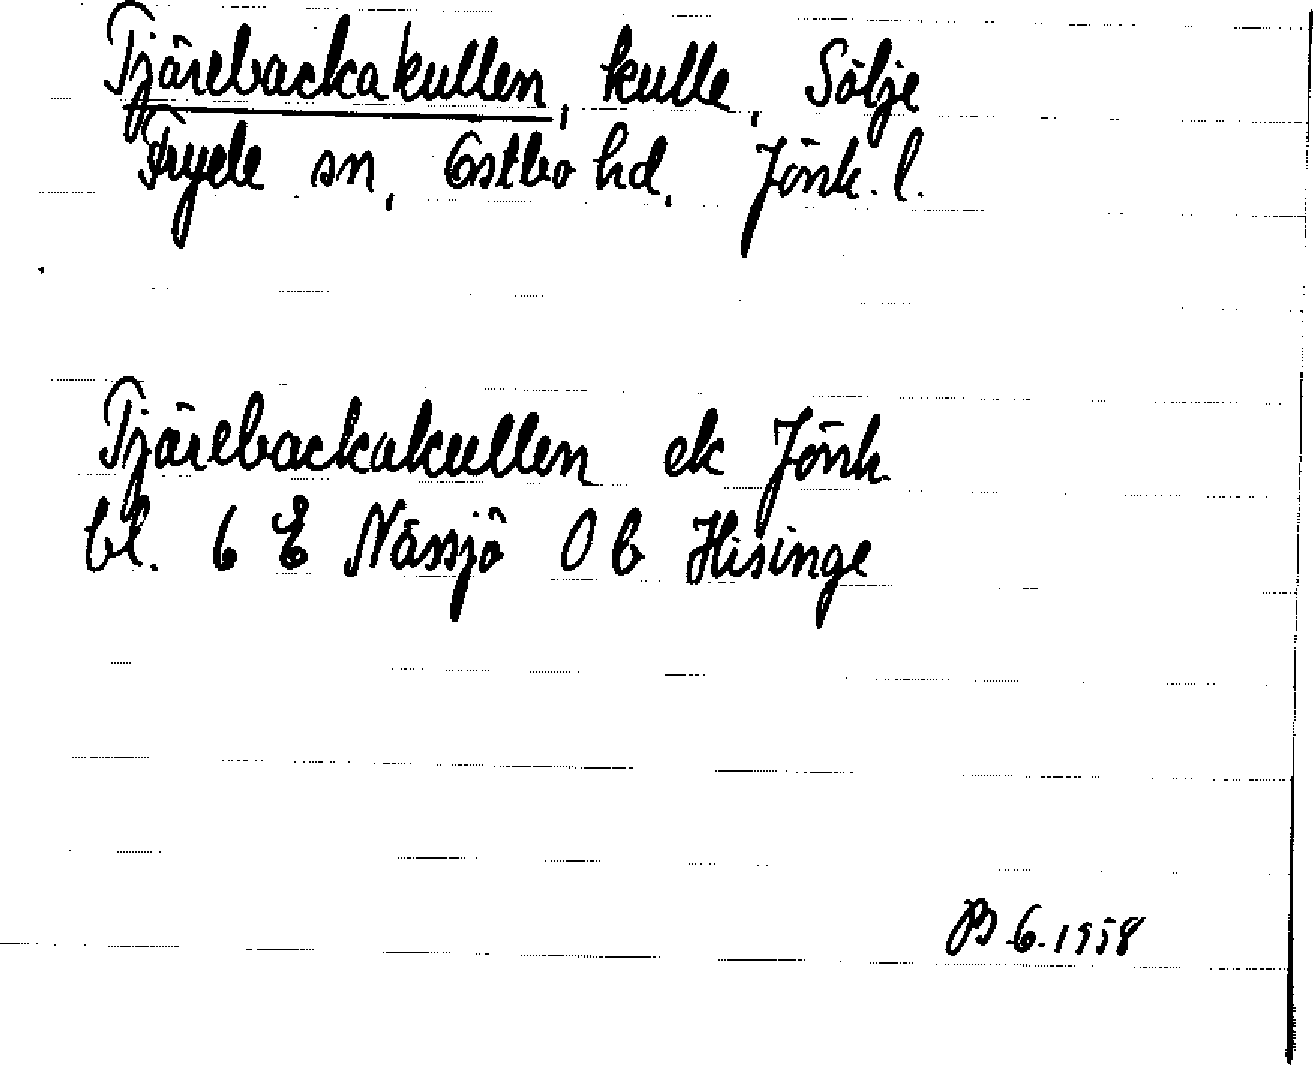 Tjärebackakullen, kulle, Sölje
Fryele sn, Östbo hd, Jönk. l.
Tjärebackakullen ek Jönk.
bl. 6 E Nässjö 0 b Hisinge
6.1958